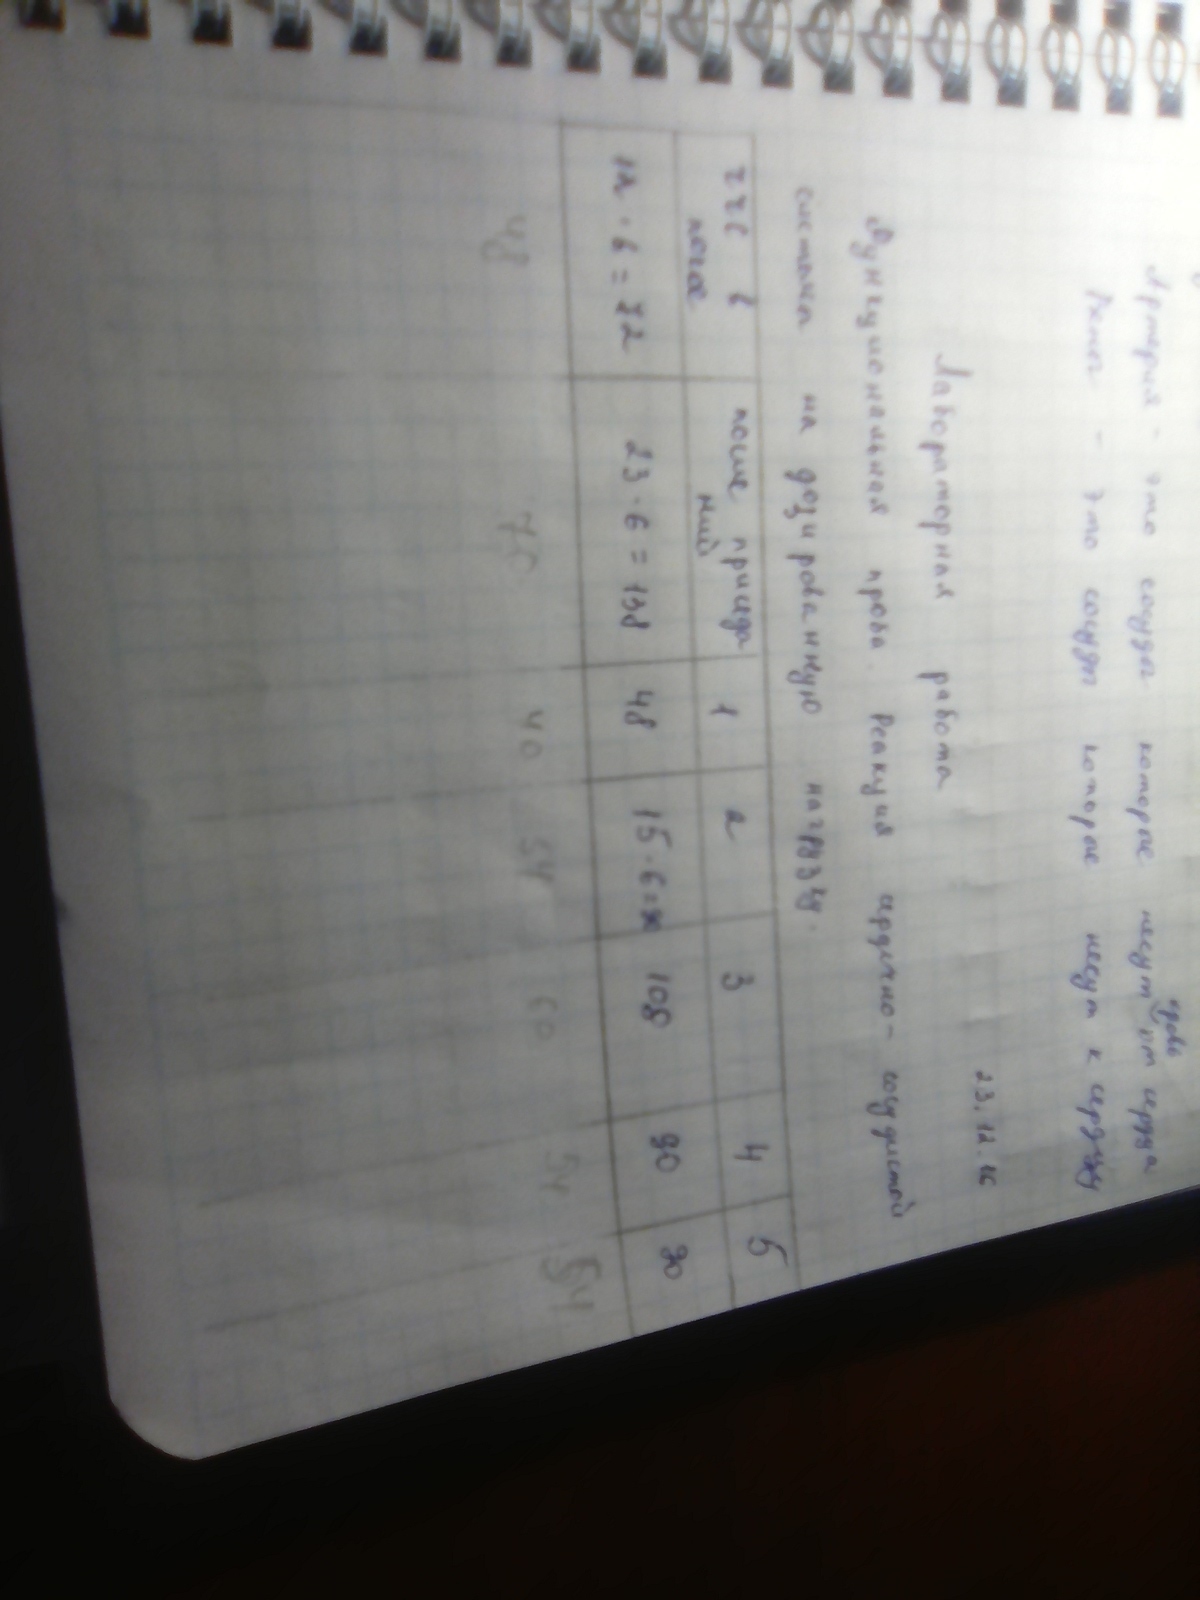 Артерия - это сосуды которые несут кровь от сердца
Вены - это сосуды которые несут к сердцу
23.12.16
Лабораторная работа
Функциональная проба. Реакция сердечно-сосудистой
системы на дозированную нагрузку.
ЧСС в покое | после приседаний | 1 | 2 | 3 | 4 | 5
12·6=72 | 23·6=138 | 48 | 15·6=90 | 108 | 90 | 90
48 | 40 | 54 | 60 | 54 | 54